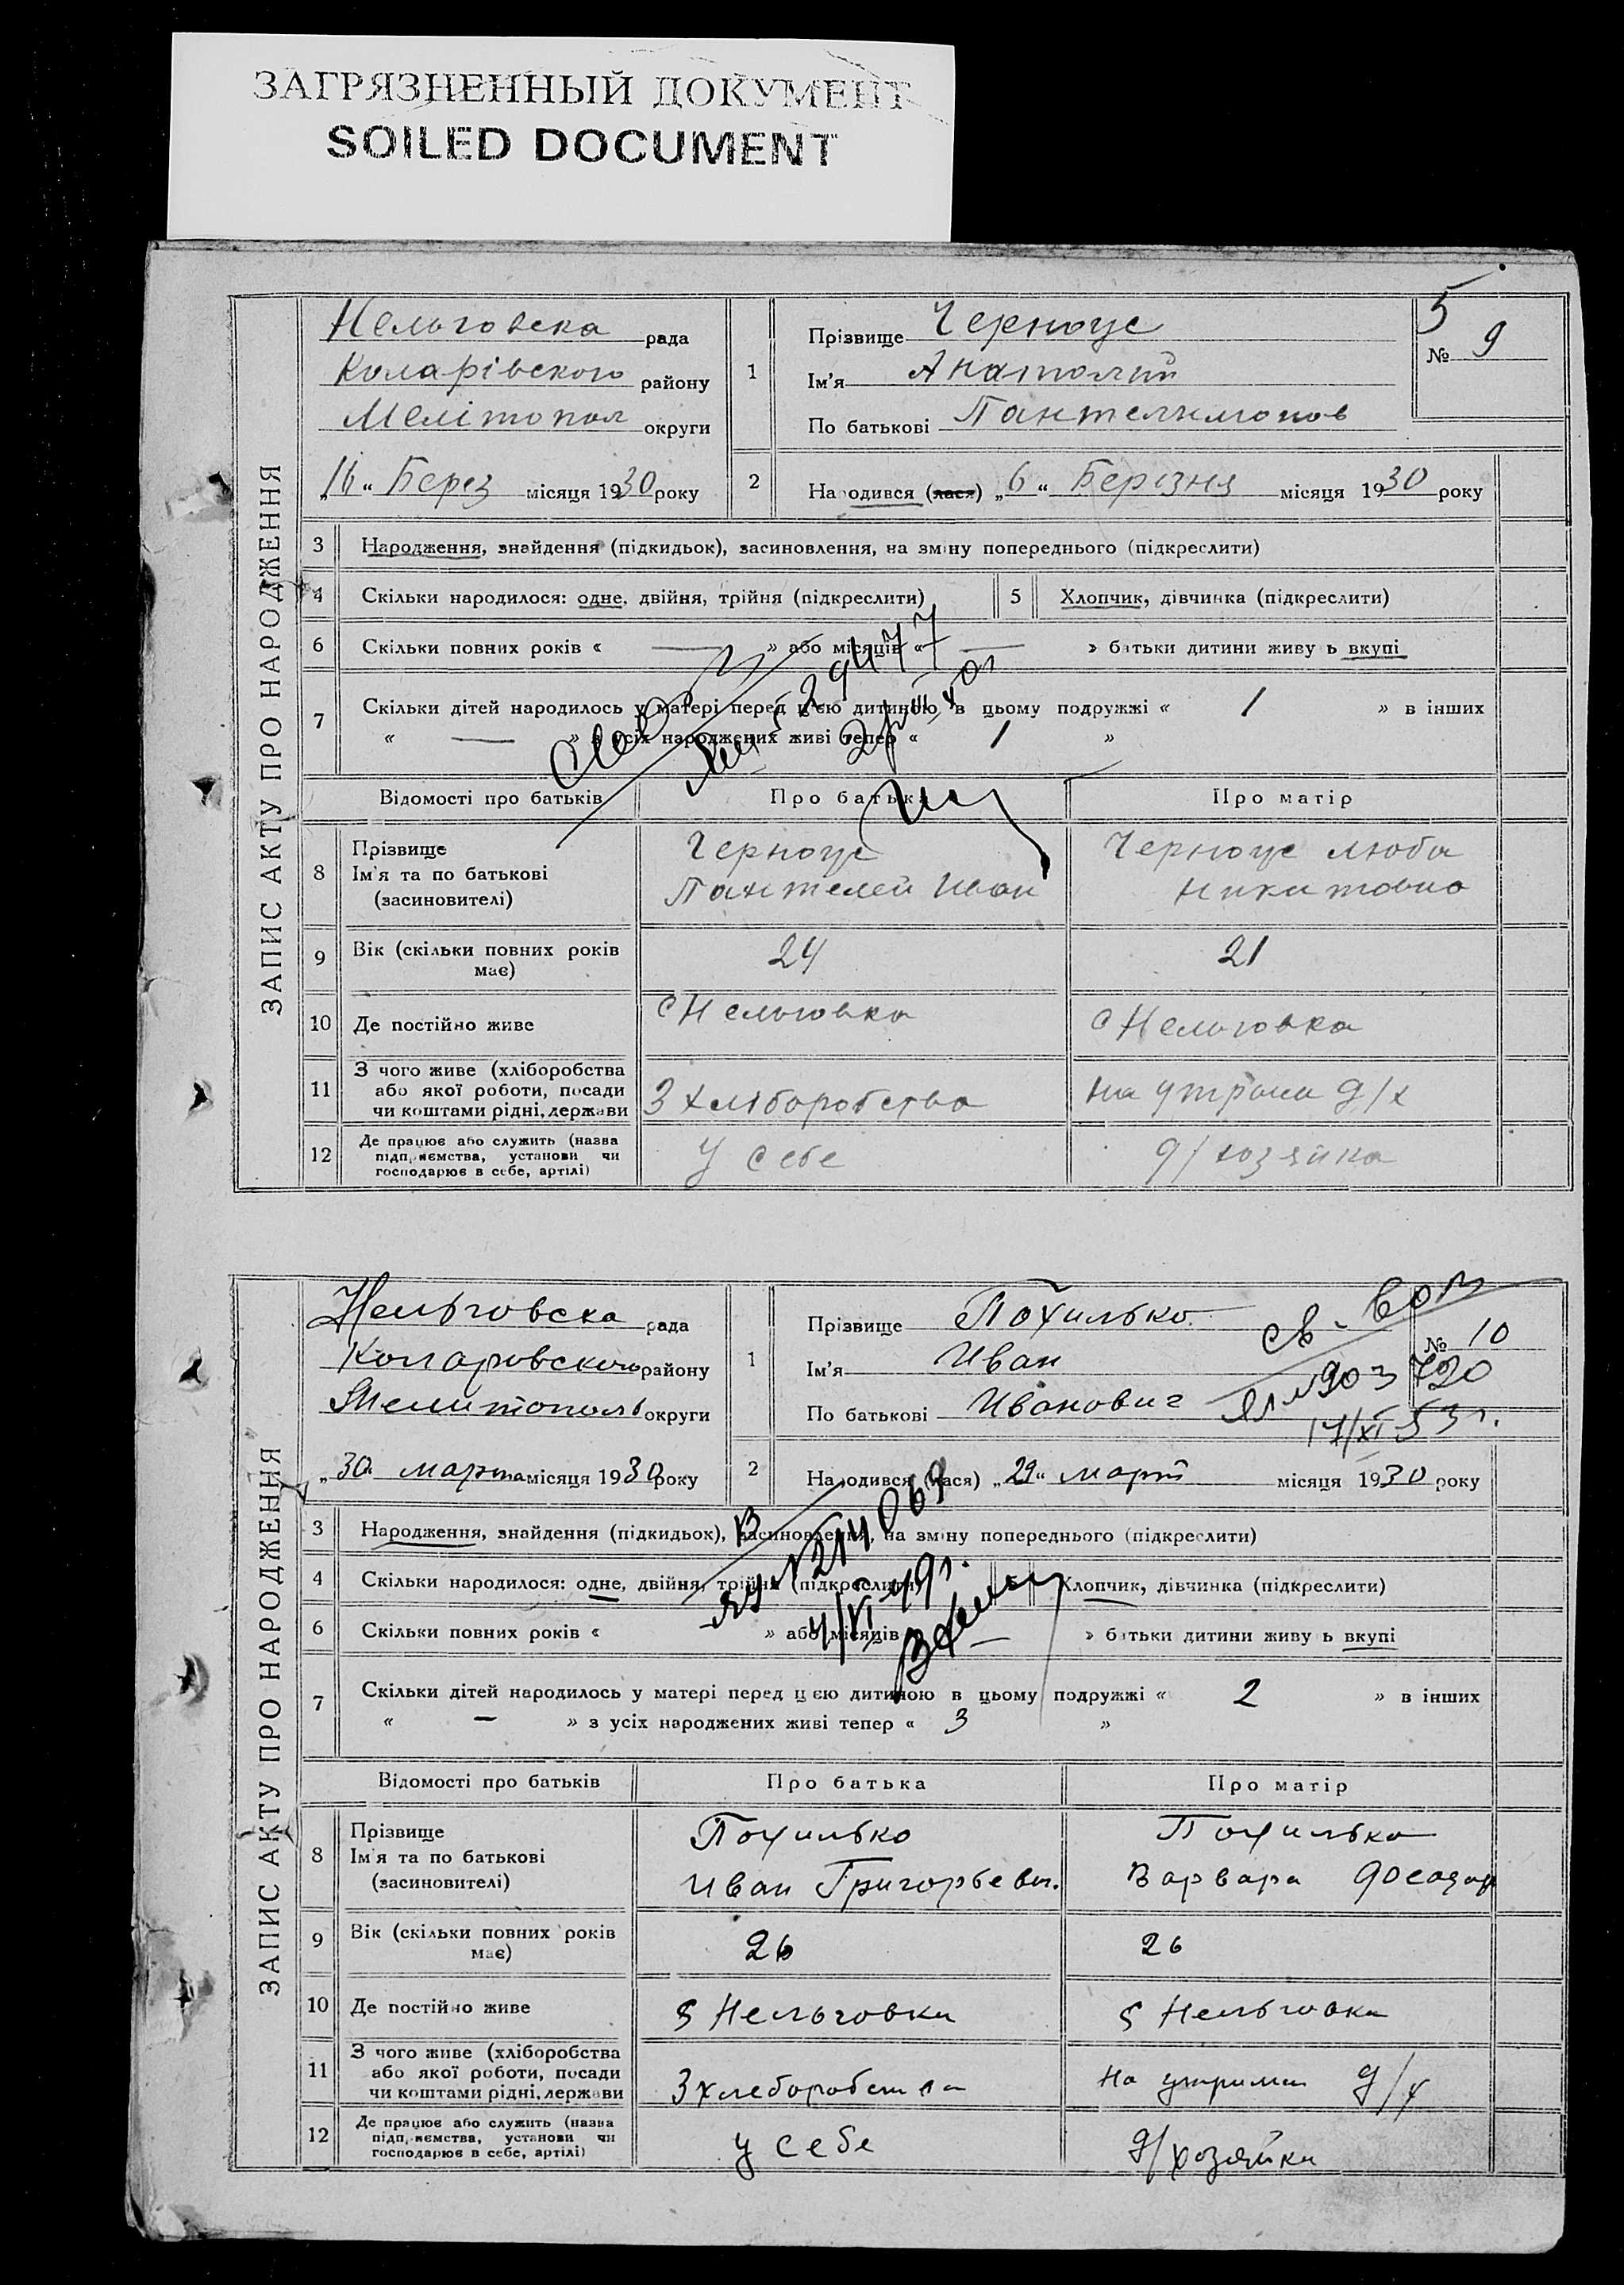 ЗАГРЯЗНЕННЫЙ ДОКУМЕНТ
SOILED DOCUMENT
5
ЗАПИС АКТУ ПРО НАРОДЖЕННЯ
Нельговска рада
Коларівского району
Мелітопол округи
„16“ Берез місяця 1930 року
1
Прізвище Черноус
Ім'я Анатолий
По батькові Пантелимонов
№ 9
2
Народився (лася) „6“ Березня місяця 1930 року
3 Народження, знайдення (підкидьок), засиновлення, на зміну попереднього (підкреслити)
4 Скільки народилося: одне, двійня, трійня (підкреслити) 5 Хлопчик, дівчинка (підкреслити)
6 Скільки повних років « — » або місяців « — » батьки дитини живуть вкупі
7 Скільки дітей народилось у матері перед цією дитиною в цьому подружжі « 1 » в інших
« — » з усіх народжених живі тепер « 1 »
Відомості про батьків Про батька Про матір
8 Прізвище
Ім'я та по батькові
(засновителі)
Черноус
Пантелей Иван
Черноус Люба
Никитовна
9 Вік (скільки повних років
має)
24
21
10 Де постійно живе
с Нельговка
с Нельговка
11 З чого живе (хліборобства
або якої роботи, посади
чи коштами рідні, держави
З хліборобства
на утрим д/х
12 Де працює або служить (назва
підприємства, установи чи
господарює в себе, артілі)
У себе
д/хозяйка
ЗАПИС АКТУ ПРО НАРОДЖЕННЯ
Нельговска рада
Коларовского району
Мелитополь округи
„30“ марта місяця 1930 року
1
Прізвище Похилько
Ім'я Иван
По батькові Иванович
№ 10
17/XI 53 г.
2
Народився (лася) „29“ март місяця 1930 року
3 Народження, знайдення (підкидьок), засиновлення, на зміну попереднього (підкреслити)
4 Скільки народилося: одне, двійня, трійня (підкреслити) Хлопчик, дівчинка (підкреслити)
6 Скільки повних років « » або місяців — » батьки дитини живуть вкупі
7 Скільки дітей народилось у матері перед цією дитиною в цьому подружжі « 2 » в інших
« — » з усіх народжених живі тепер « 3 »
Відомості про батьків Про батька Про матір
8 Прізвище
Ім'я та по батькові
(засиновителі)
Похилько
Иван Григорьевич.
Похилько
Варвара
9 Вік (скільки повних років
має)
26
26
10 Де постійно живе
с Нельговки
с Нельговка
11 З чого живе (хліборобства
або якої роботи, посади
чи коштами рідні, держави
З хлеборобства
На утриман д/х
12 Де працює або служить (назва
підприємства, установи чи
господарює в себе, артілі)
у себе
д/хозяйка